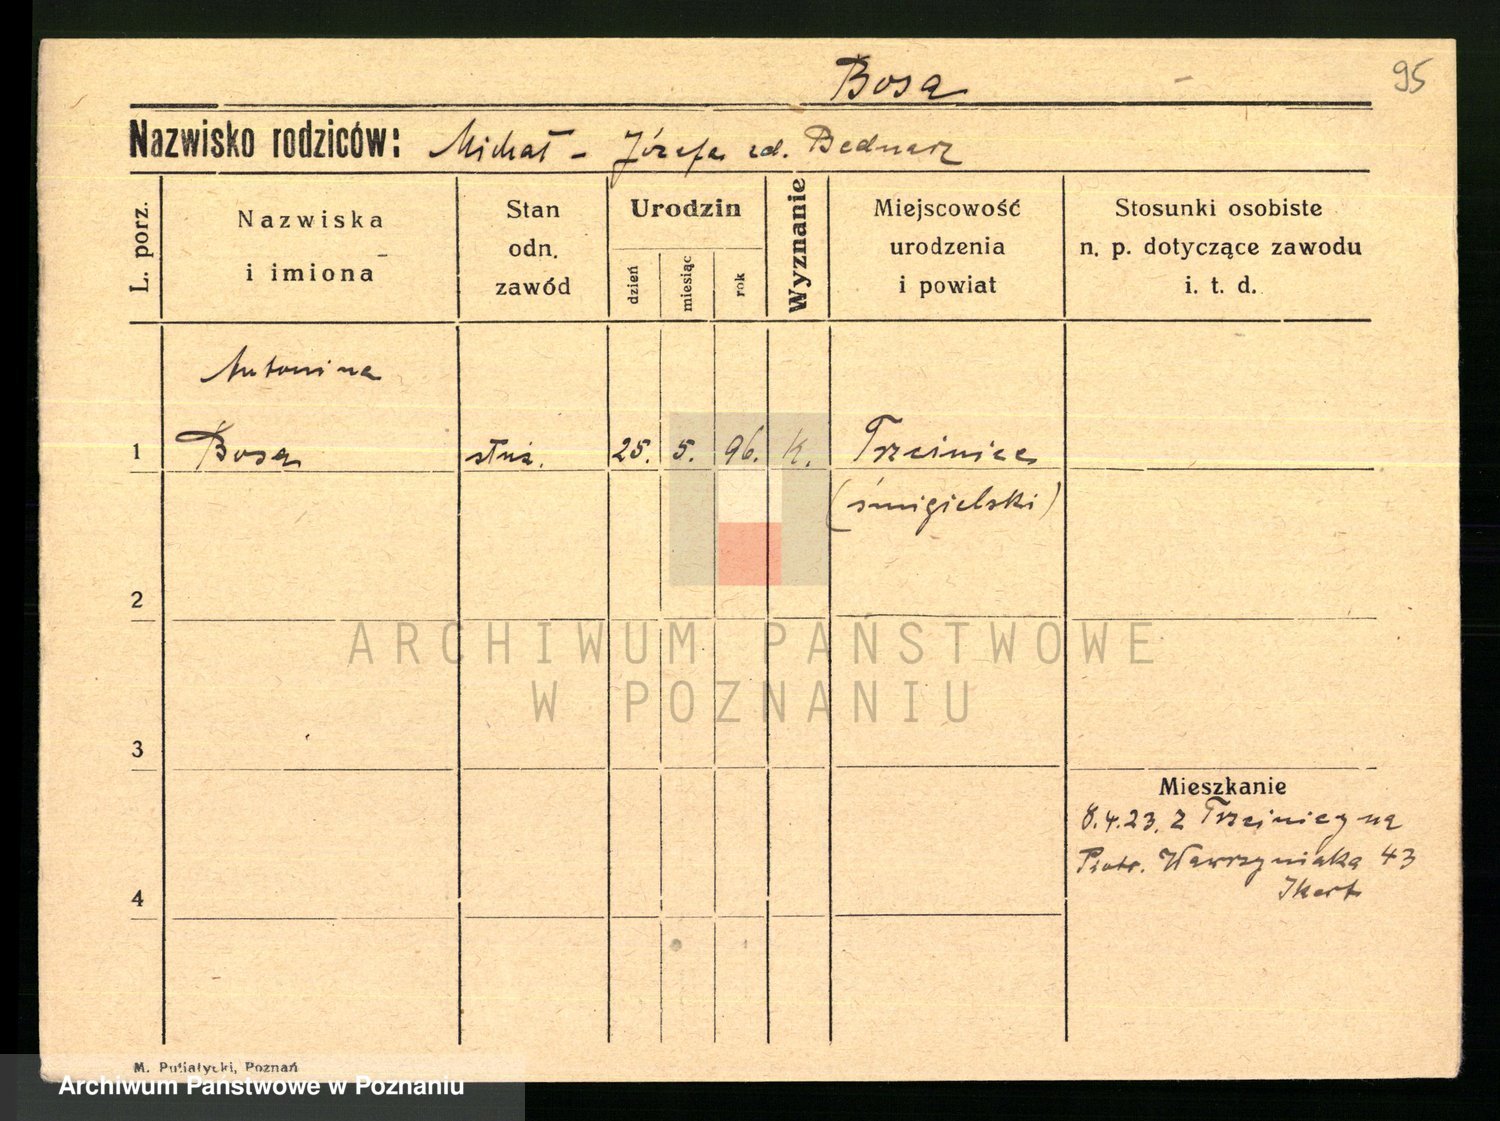 Bosa
95
Nazwisko rodziców: Michał - Józefa zd. Bednarz
L. porz.
Nazwiska
i imiona
Stan
odn.
zawód
Urodzin
dzień
miesiąc
rok
Wyznanie
Miejscowość
urodzenia
i powiat
Stosunki osobiste
n. p. dotyczące zawodu
i. t. d.
Antonina
1 Bosa służ. 25. 5. 96. K. Trzcinica
(śmigielski)
2
ARCHIWUM PAŃSTWOWE
W POZNANIU
3
Mieszkanie
8.4.23. z Trzcinicy na
Piotr. Wawrzyniaka 43
4
M. Putiatycki, Poznań
Archiwum Państwowe w Poznaniu